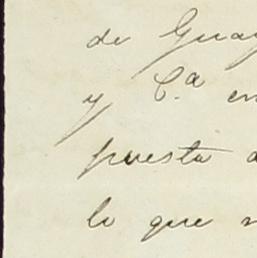 de Guay
y C.ª en
puesta a
lo que